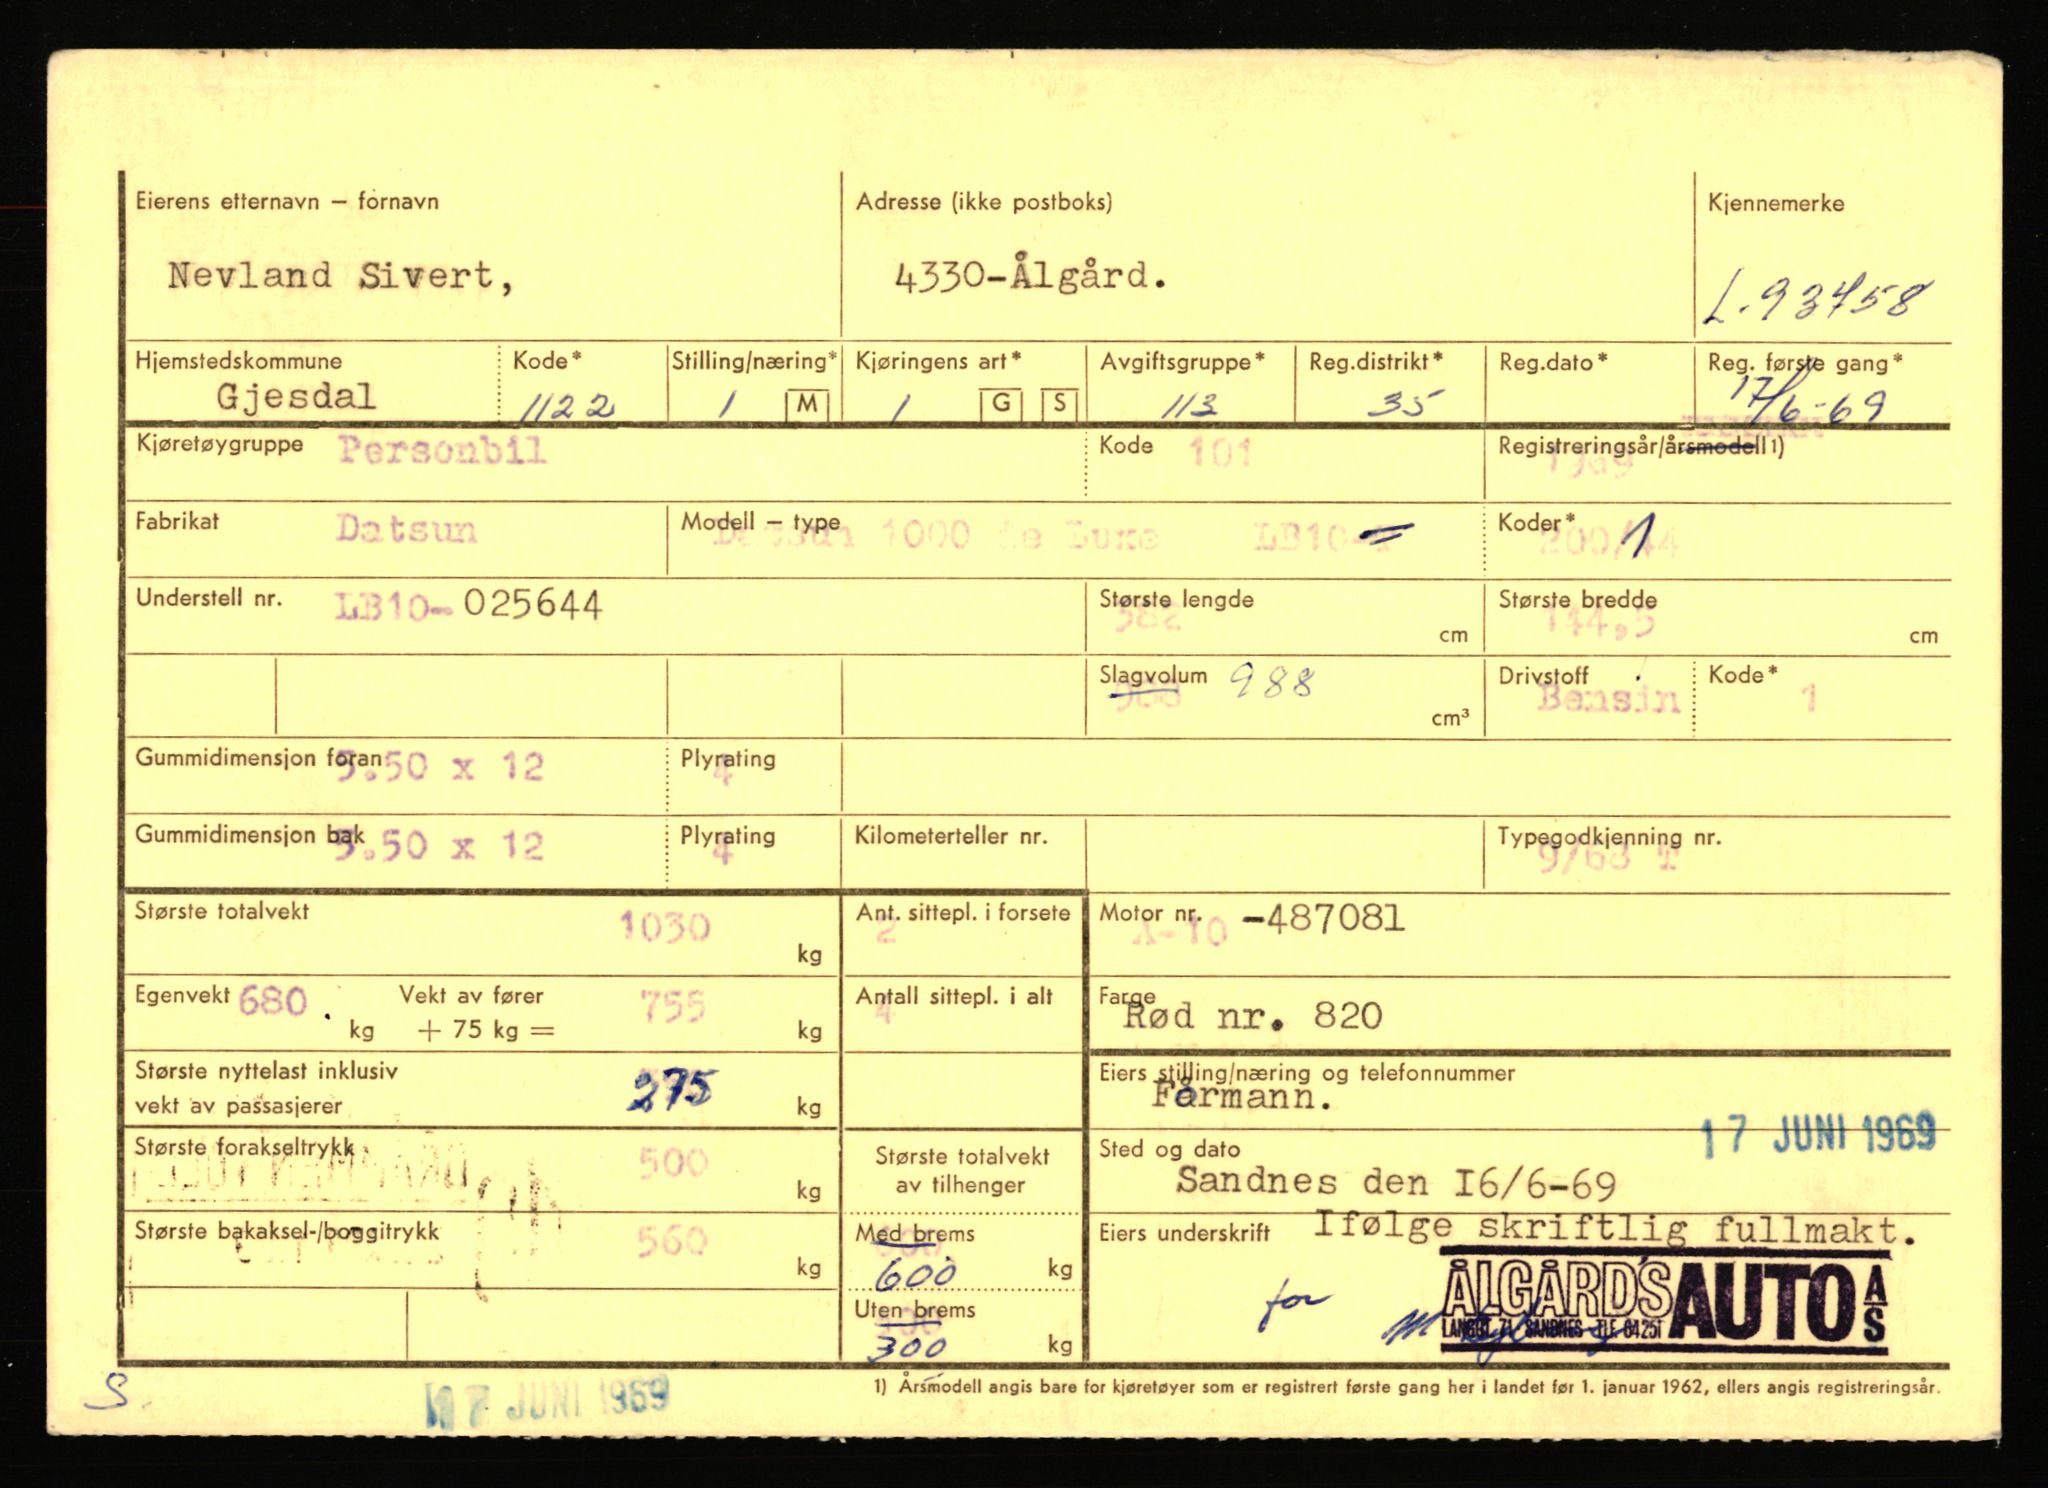 Eierens etternavn – fornavn
Adresse (ikke postboks)
Kjennemerke
Nevland Sivert,
4330-Ålgård.
L-93758
Hjemstedskommune Kode* Stilling/næring* Kjøringens art* Avgiftsgruppe* Reg.distrikt* Reg.dato* Reg. første gang*
Gjesdal 1122 1 M 1 G S 113 35 17/6-69
Kjøretøygruppe Personbil Kode 101 Registreringsår/årsmodell 1)
1969
Fabrikat Datsun Modell – type Datsun 1000 de Luxe LB10-T Koder* 200/44 1
Understell nr. LB10- 025644 Største lengde 382 cm Største bredde 144,5 cm
Slagvolum 988 988 cm³ Drivstoff Bensin Kode* 1
Gummidimensjon foran 5.50 x 12 Plyrating 4
Gummidimensjon bak 5.50 x 12 Plyrating 4 Kilometerteller nr. Typegodkjenning nr.
9/68 T
Største totalvekt 1030 kg Ant. sittepl. i forsete 2 Motor nr. A-10 -487081
Egenvekt 680 kg Vekt av fører + 75 kg = 755 kg Antall sittepl. i alt 4 Farge
Rød nr. 820
Største nyttelast inklusiv
vekt av passasjerer 275 kg
Eiers stilling/næring og telefonnummer
Fårmann.
17 JUNI 1969
Største forakseltrykk 500 kg Største totalvekt
av tilhenger
Sted og dato
Sandnes den I6/6-69
Største bakaksel-/boggitrykk 560 kg Med brems
600 kg
Eiers underskrift Ifølge skriftlig fullmakt.
Uten brems
300 kg
for
ÅLGÅRDS AUTO A/S
LANGGT. 71 SANDNES - TLF. 64251
S
17 JUNI 1969
1) Årsmodell angis bare for kjøretøyer som er registrert første gang her i landet før 1. januar 1962, ellers angis registreringsår.